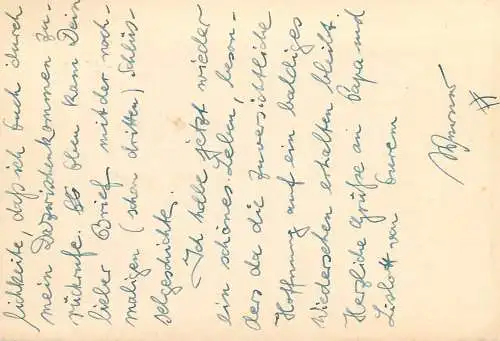 lichkeite, daß ich Euch durch
mein Dazwischenkommen zu-
rückrufe. So oben kam Dein
lieber Brief mit der noch-
maligen (schon dritten) Schlüs-
selgeschichte.
Ich habe jetzt wieder
ein schönes Leben, beson-
ders da die zuversichtliche
Hoffnung auf ein baldiges
Wiedersehen erhalten bleibt.
Herzliche Grüße an Papa und
Lislott von Eurem
Werner